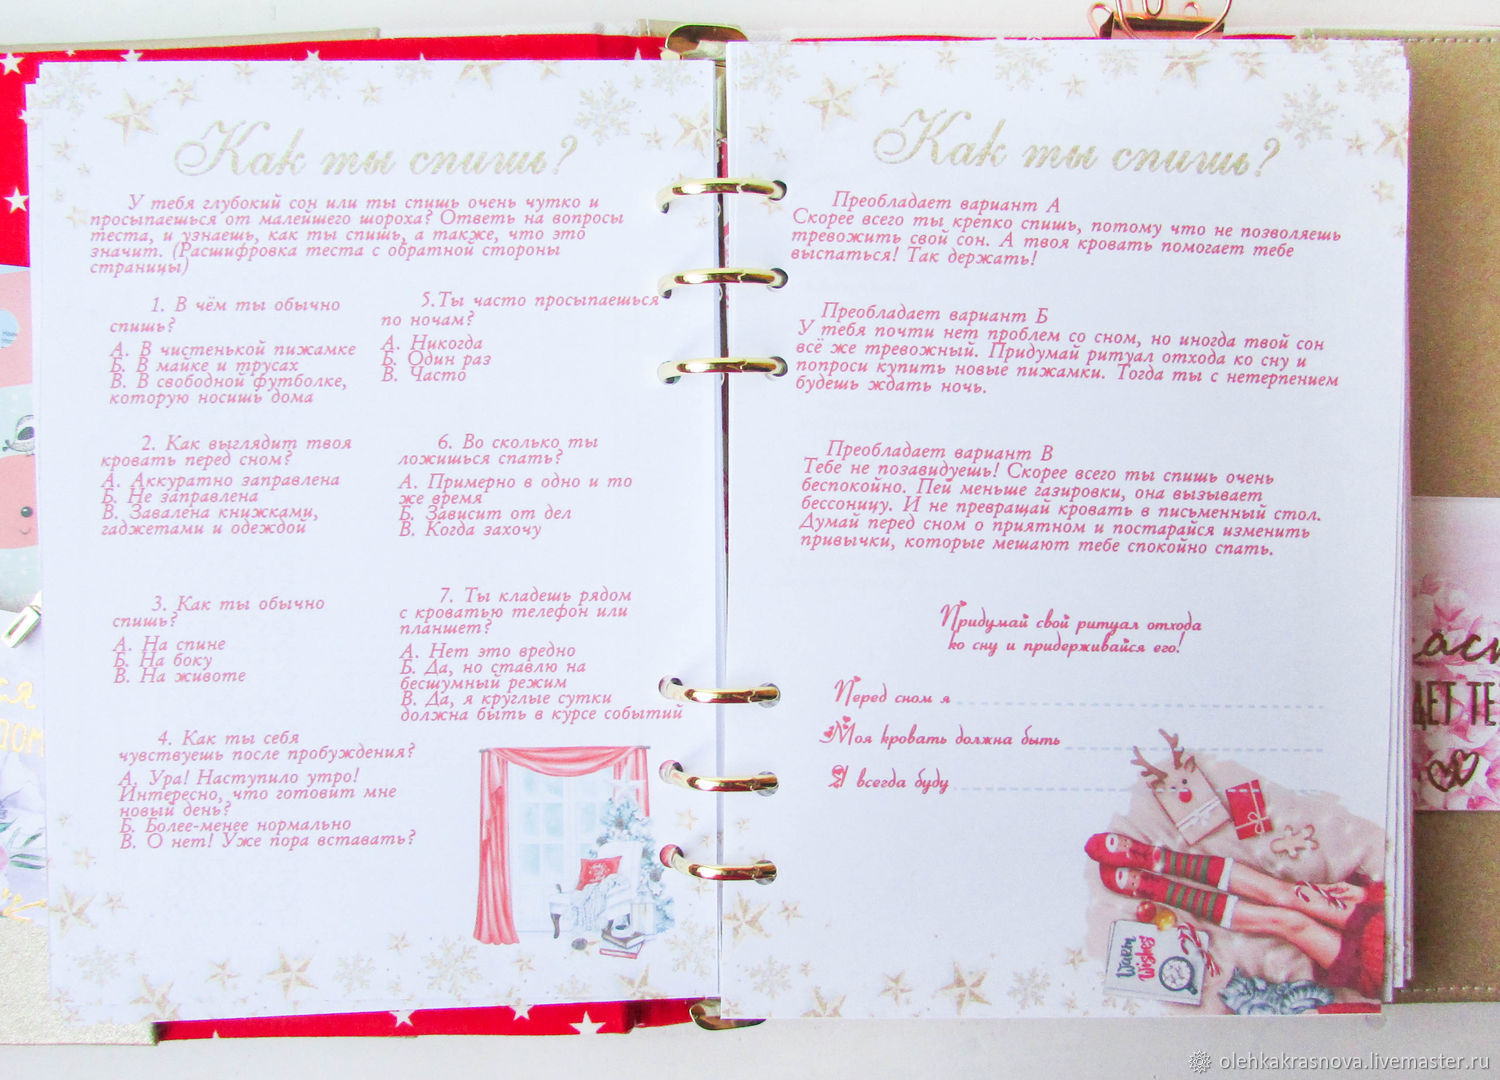 Как ты спишь?
У тебя глубокий сон или ты спишь очень чутко и
просыпаешься от малейшего шороха? Ответь на вопросы
теста, и узнаешь, как ты спишь, а также, что это
значит. (Расшифровка теста с обратной стороны
страницы)
1. В чём ты обычно
спишь?
А. В чистенькой пижамке
Б. В майке и трусах
В. В свободной футболке,
которую носишь дома
2. Как выглядит твоя
кровать перед сном?
А. Аккуратно заправлена
Б. Не заправлена
В. Завалена книжками,
гаджетами и одеждой
3. Как ты обычно
спишь?
А. На спине
Б. На боку
В. На животе
4. Как ты себя
чувствуешь после пробуждения?
А. Ура! Наступило утро!
Интересно, что готовит мне
новый день?
Б. Более-менее нормально
В. О нет! Уже пора вставать?
5.Ты часто просыпаешься
по ночам?
А. Никогда
Б. Один раз
В. Часто
6. Во сколько ты
ложишься спать?
А. Примерно в одно и то
же время
Б. Зависит от дел
В. Когда захочу
7. Ты кладешь рядом
с кроватью телефон или
планшет?
А. Нет это вредно
Б. Да, но ставлю на
бесшумный режим
В. Да, я круглые сутки
должна быть в курсе событий
Как ты спишь?
Преобладает вариант А
Скорее всего ты крепко спишь, потому что не позволяешь
тревожить свой сон. А твоя кровать помогает тебе
выспаться! Так держать!
Преобладает вариант Б
У тебя почти нет проблем со сном, но иногда твой сон
всё же тревожный. Придумай ритуал отхода ко сну и
попроси купить новые пижамки. Тогда ты с нетерпением
будешь ждать ночь.
Преобладает вариант В
Тебе не позавидуешь! Скорее всего ты спишь очень
беспокойно. Пей меньше газировки, она вызывает
бессоницу. И не превращай кровать в письменный стол.
Думай перед сном о приятном и постарайся изменить
привычки, которые мешают тебе спокойно спать.
Придумай свой ритуал отхода
ко сну и придерживайся его!
Перед сном я
Моя кровать должна быть
Я всегда буду
Warm
Wishes
olehkakrasnova.livemaster.ru